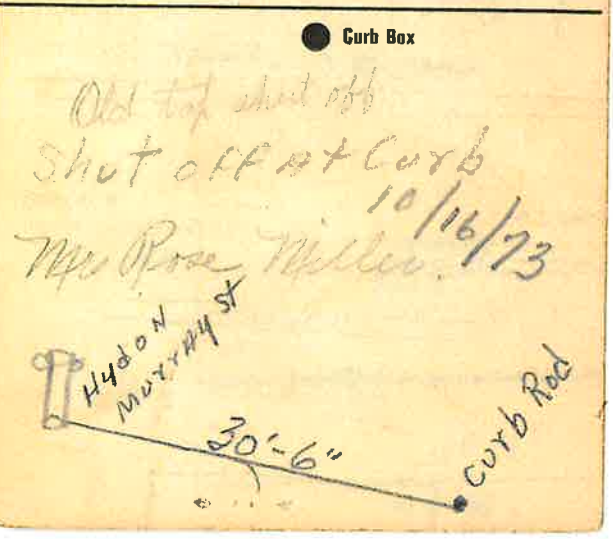 Curb Box
Old tap shut off
Shut off At Curb
10/16/73
Mrs Rose Miller.
Hyd on
Murray St
30'-6"
Curb Rod